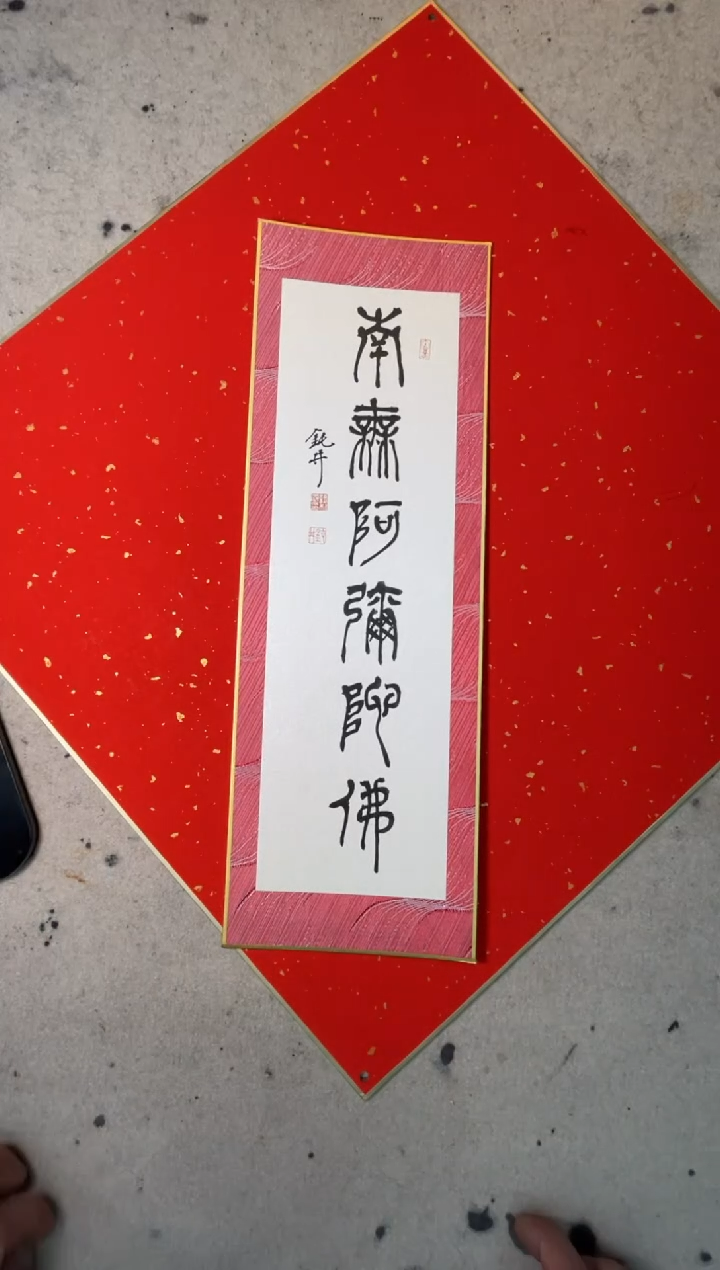 南無阿彌陀佛
鈍井